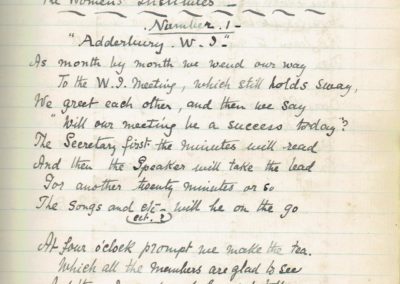 The Womens' Institutes -
Number. 1 -
"Adderbury. W. I -"
As month by month we wend our way
To the W. I. Meeting, which still holds sway,
We greet each other, and then we say
"Will our meeting be a success today"?
The Secretary first the minutes will read
And then the Speaker will take the lead
For another twenty minutes or so
The songs and etc - will be on the go
ect. ?
At four o'clock prompt we make the tea.
Which all the members are glad to see